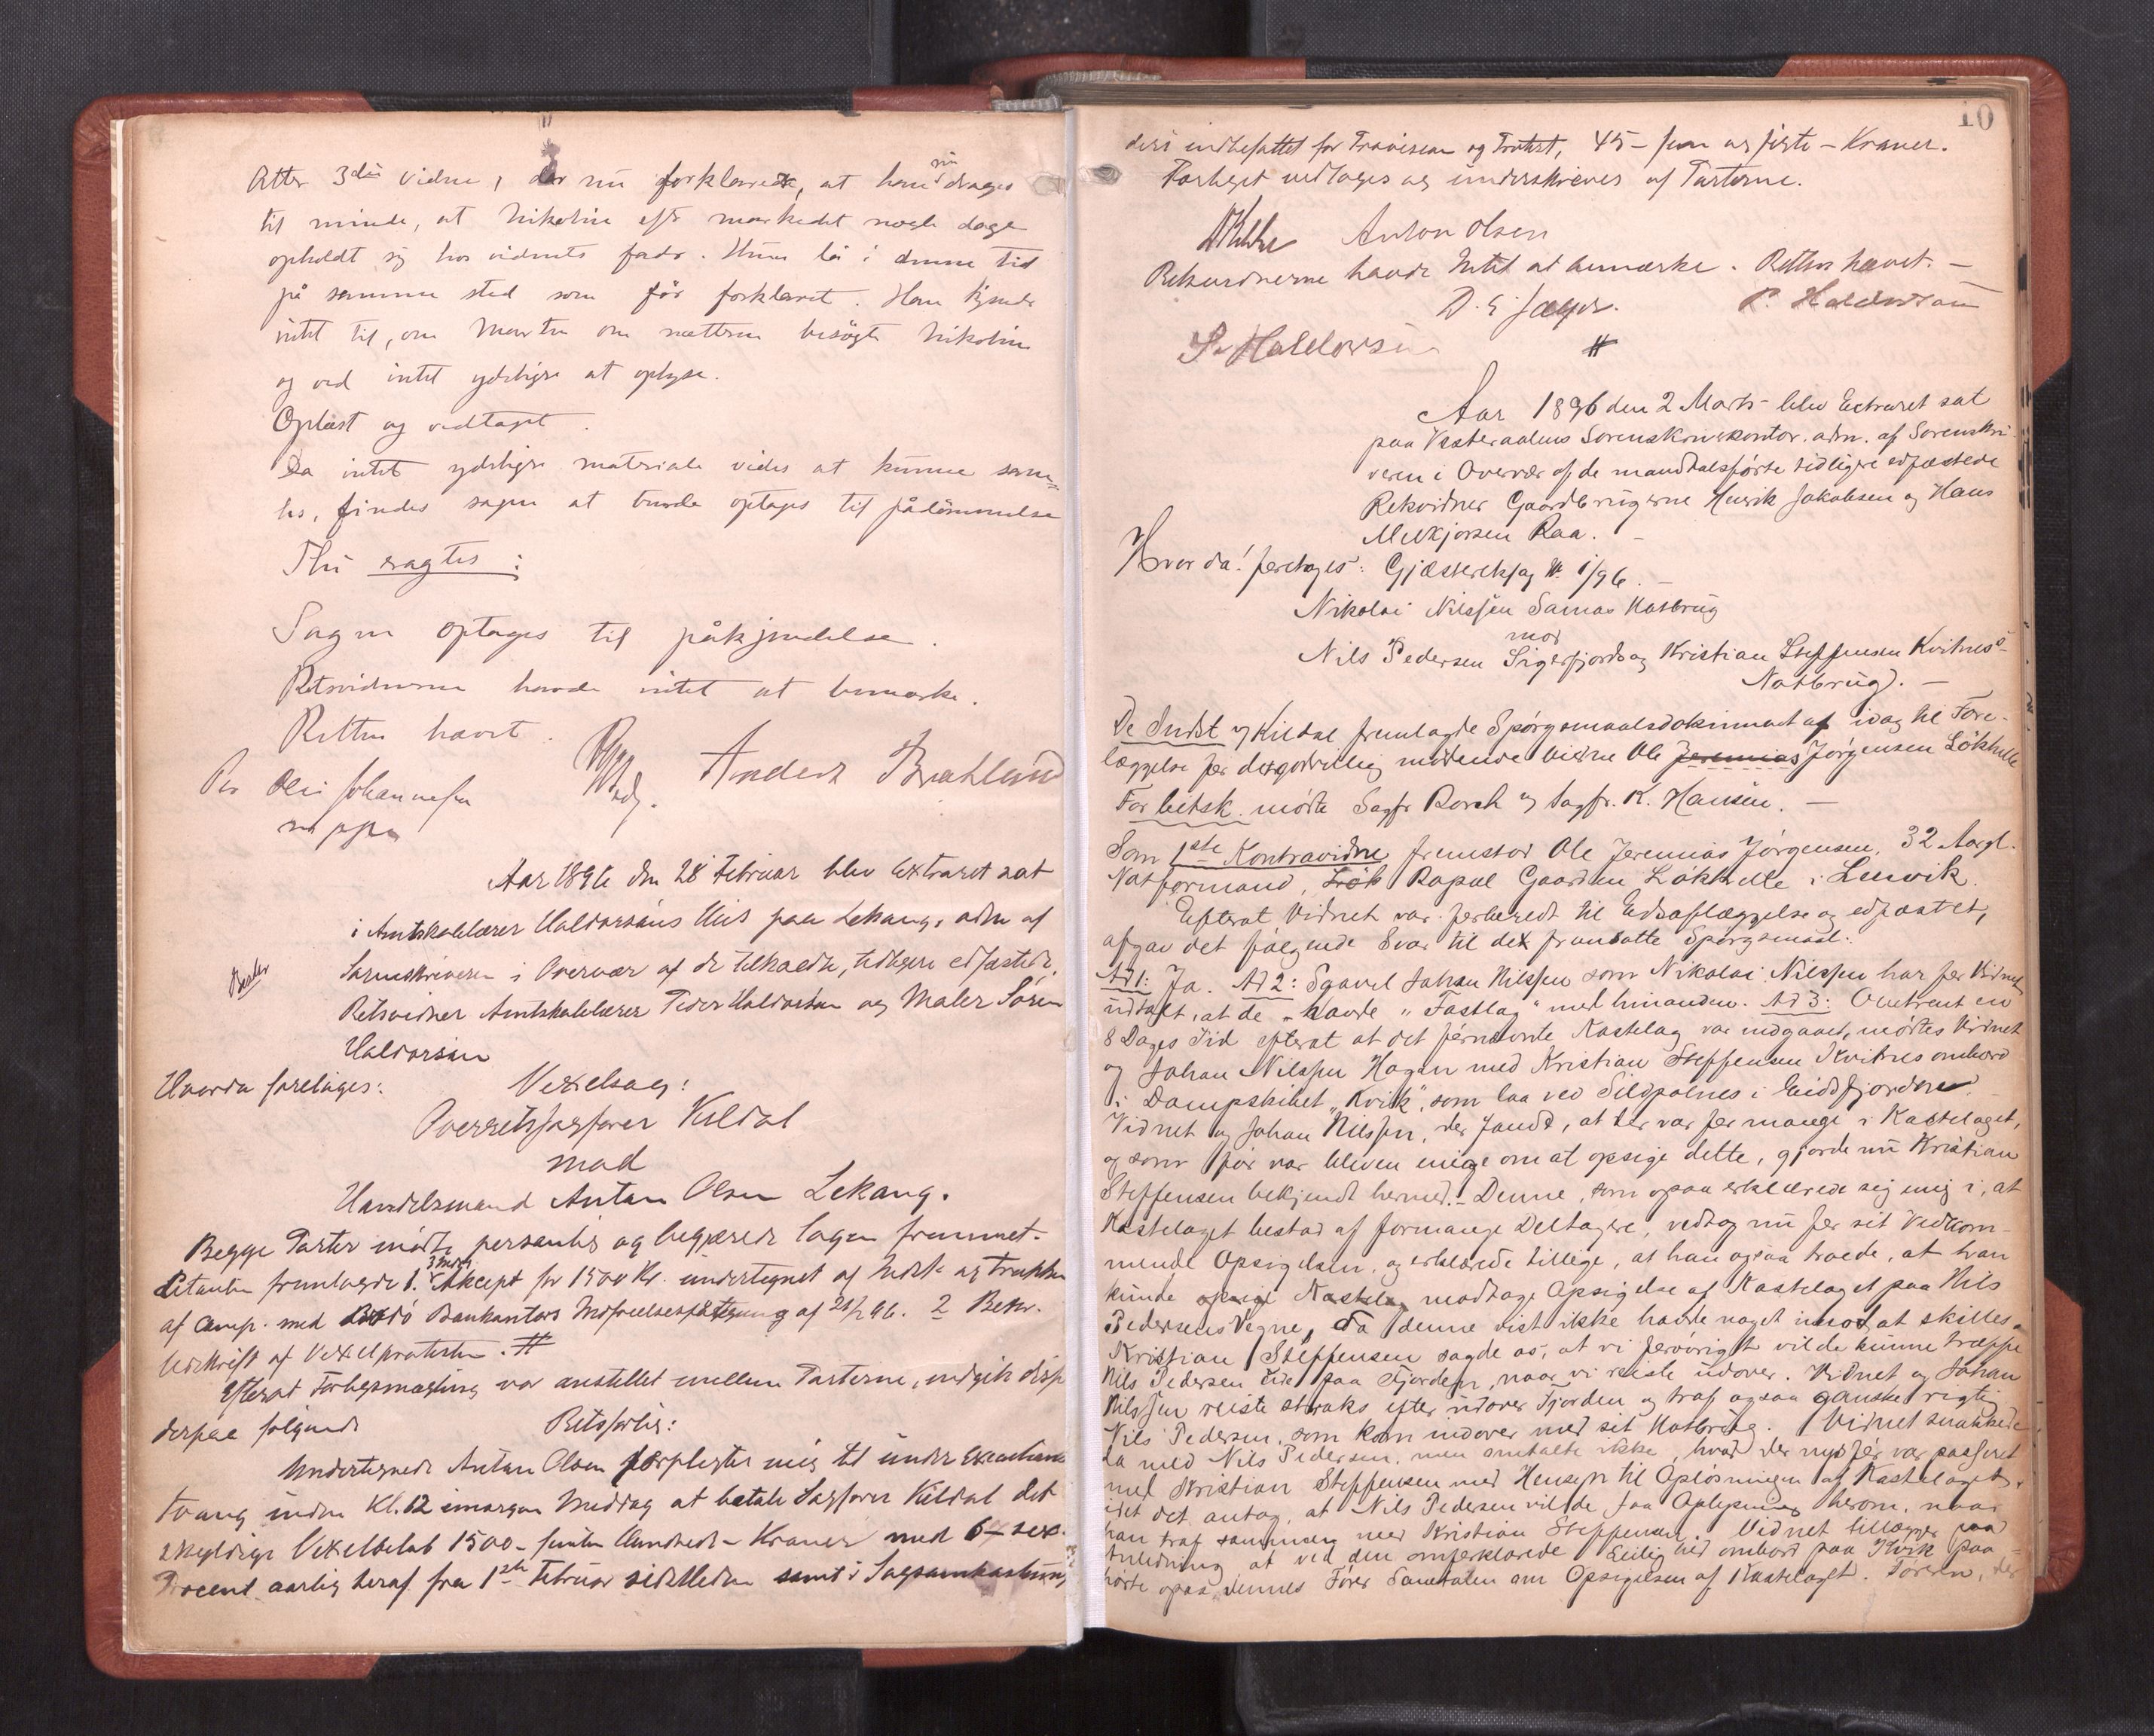 Atter 3die vidne, der nu forklarede, at han nu drages
til minde, at Nikoline eft. markedet nogle dage
opholdt sig hos vidnets fader. Hun lå i denne tid
på samme sted som før forklaret. Han kjender
intet til, om Morten om nætterne besøgte Nikoline
og ved intet yderligere at oplyse.
Oplæst og vedtaget.
Da intet yderligere materiale vides at kunne sam-
les, findes sagen at burde optages til pådømmelse
Thi sagtes:
Sagen optages til påkjendelse.
Retsvidnerne havde intet at bemærke.
Retten hævet.
Anders Brekland
Per Olai Johannesen
Aar 1896 den 28 Februar blev Extraret sat
i Amtskolelærer Haldorsens Hus paa Lekang, adm af
Sorenskriveren i Overvær af de tilkaldte, tidligere edfæstede,
Retsvidner Amtskolelærer Peder Haldorsen og Maler Søren
Haldorsen
Hvorda foretages: Vexelsag:
Overretssagfører Kildal
mod
Handelsmand Anton Olsen Lekang.
Begge Parter mødte personlig og begjærede Sagen fremmet.
Citanten fremlagde 1. 3 Mdrs Akcept for 1500 Kr. undertegnet af Indst. og trukken
af Comp. med Bodø Bankkontors af 21/2 96. 2 Bekr.
Udskrift af Vexelprotesten. #
Efterat Forligsmægling var anstillet mellem Parterne, indgik disse
derpaa følgende Retsforlig:
Undertegnede Anton Olsen forpligter mig til under Executions
tvang inden Kl. 12 imorgen Middag at betale Sagfører Kildal det
skyldige Vexelbeløb 1500 - femten Hundrede - Kroner med 6 - sex -
Procent aarlig heraf fra 1ste Februar sidstleden samt i Sagsomkostning
10
deri indbefattet for Provision og Protest, 45 - fem og førti - Kroner.
Forliget vedtages og underskrives af Parterne.
Kildal Anton Olsen
Retsvidnerne havde Intet at bemærke. Retten hævet. -
P. Haldorsen
S. Haldorsen #
Aar 1896 den 2 Marts blev Extraret sat
paa Vesteraalens Sorenskriverkontor, adm. af Sorenskri-
veren i Overvær af de mandtalsførte tidligere edfæstede
Retsvidner Gaardbrugerne Henrik Jakobsen og Hans
Melkjorsen Raa. -
Hvorda! foretages: Gjæsteretssag No 1/96. -
Nikolai Nilssen Sannes Notbrug
mod
Nils Pedersen Sigerfjord og Kristian Steffensen Kvitnes's
Notbrug). -
De Indst. v/Kildal fremlagde Spørgsmaalsdokument af idag til Fore-
læggelse for det godvillig mødende Vidne Ole Jeremias Jørgensen Løkhelle
For Citsk. mødte Sagfr Borch v/ Sagfr. K. Hansen. -
Som 1ste Kontravidne fremstod Ole Jeremias Jørgensen, 32 Aar gl.
Notformand, Løk Bopæl Gaarden Løkhelle i Lenvik.
Efterat Vidnet var forberedt til Edsaflæggelse og edfæstet,
afgav det følgende Svar til det fremsatte Spørgsmaal:
Ad 1: Ja. Ad 2: Saavel Johan Nilssen som Nikolai Nilssen har for Vidnet
udtalt, at de havde "Fastlag" med hinanden. Ad 3: Omtrent en
8 Dages Tid efterat at det førnævnte Kastelag var indgaaet, mødtes Vidnet
og Johan Nilssen Hagen med Kristian Steffensen Kvitnes ombord
i Dampskibet "Kvik", som laa ved Sildpolnes i Eidsfjorden.
Vidnet og Johan Nilssen, der fandt, at der var for mange i Kastelaget,
og som før var bleven enige om at opsige dette, gjorde nu Kristian
Steffensen bekjendt hermed. - Denne, som ogsaa erklærede sig enig i, at
Kastelaget bestod af formange Deltagere, vedtog nu for sit Vedkom-
mende Opsigelsen, og erklærede tillige, at han ogsaa troede, at han
kunde opsige Kastelag modtage Opsigelse af Kastelaget paa Nils
Pedersens Vegne, da denne vist ikke havde noget imod, at skilles.
Kristian Steffensen sagde os, at vi forøvrigt vilde kunne træffe
Nils Pedersen ude paa Fjorden, naar vi reiste udover. Vidnet og Johan
Nilssen reiste straks efter udover Fjorden og traf ogsaa ganske rigtig
Nils Pedersen, som kom indover med sit Notbrug. Vidnet snakkede
da med Nils Pedersen, men omtalte ikke, hvad der nys før var passeret
med Kristian Steffensen med Hensyn til Opløsningen af Kastelaget,
idet det antog, at Nils Pedersen vilde faa Oplysning herom, naar
han traf sammen med Kristian Steffensen. Vidnet tillægger paa
Anledning at ved den omforklarede Leilighed ombord paa Kvik paa-
hørte ogsaa dennes Fører Samtalen om Opsigelsen af Kastelaget. Føreren, der